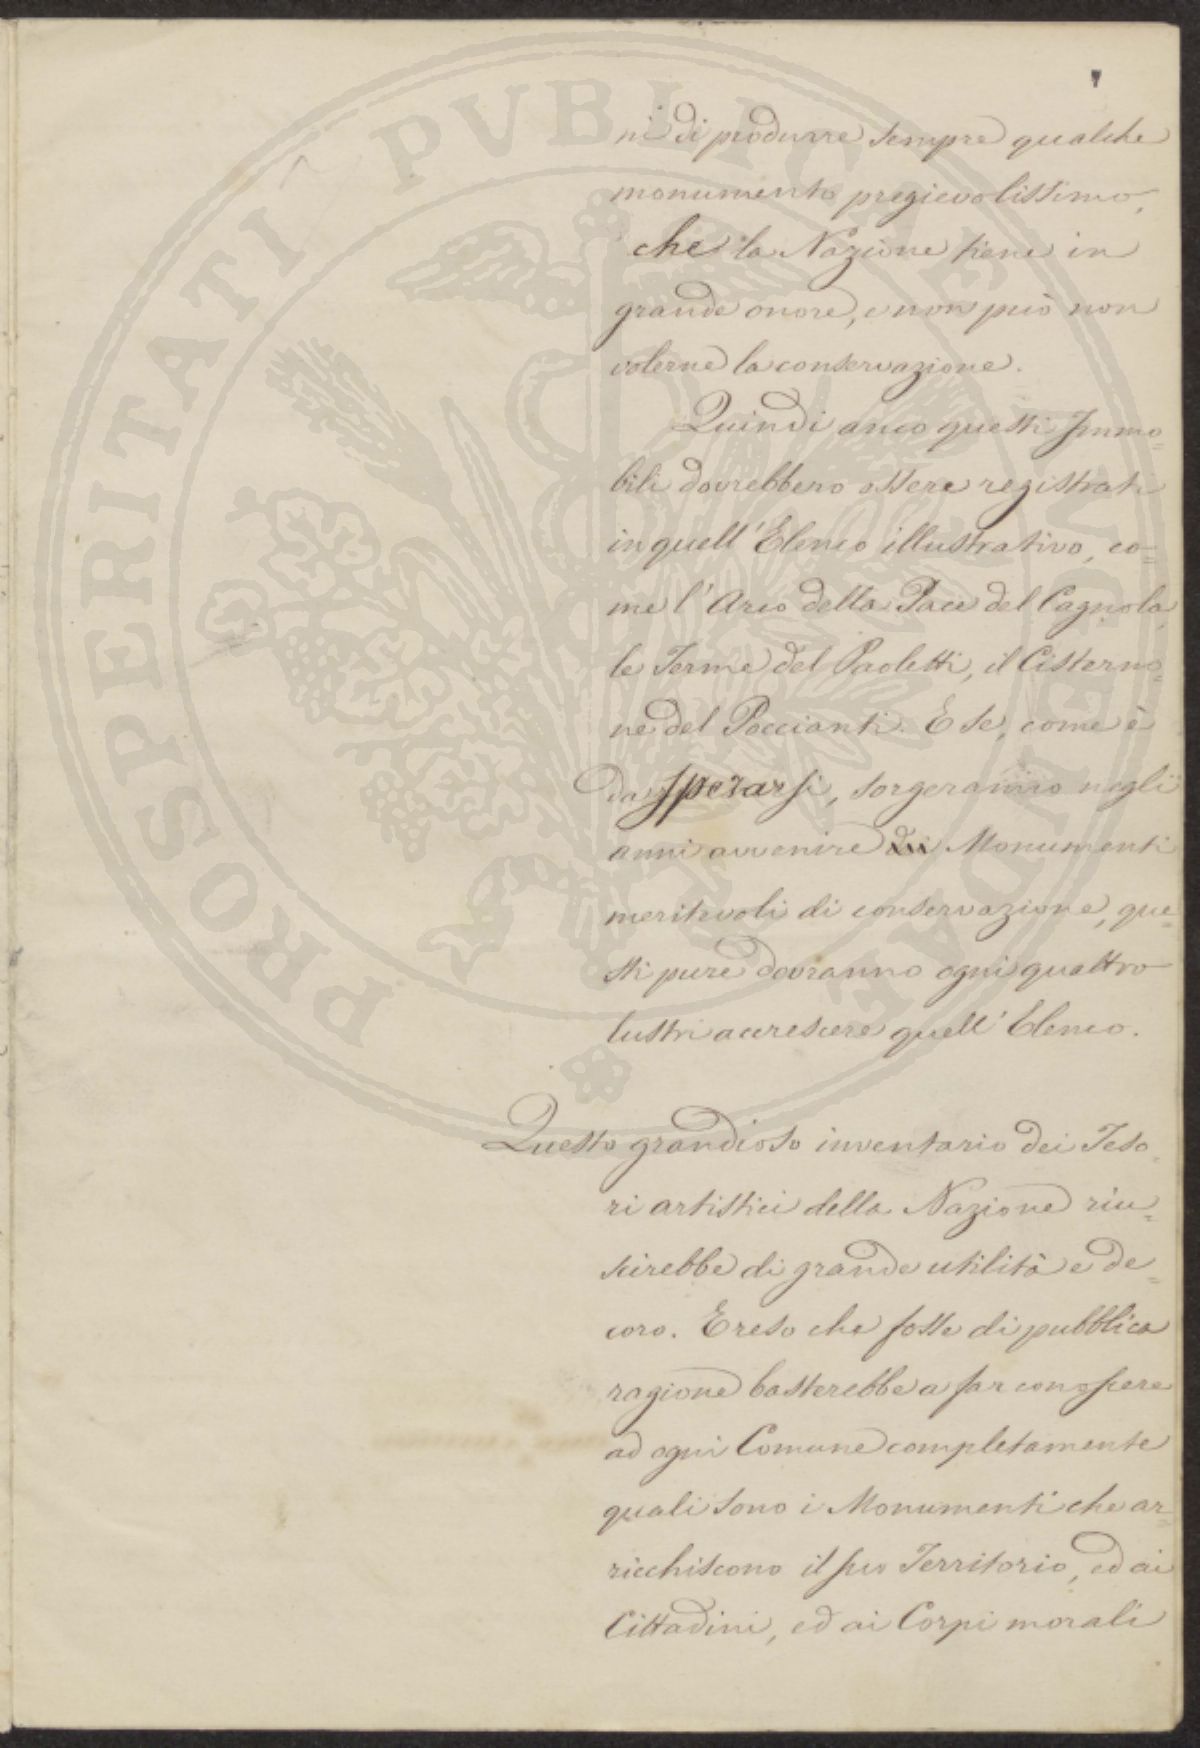 PROSPERITATI PVBLICAE AVGENDAE
ni di produrre sempre qualche
monumento pregievolissimo,
che la Nazione tiene in
grande onore, e non può non
volerne la conservazione.
Quindi anco questi Immo=
bili dovrebbero essere registrati
in quell'Elenco illustrativo, co=
me l'Arco della Pace del Cagnola,
le Terme del Paoletti, il Cisterno=
ne del Poccianti. E se, come è
da sperarsi, sorgeranno negli
anni avvenire dei Monumenti
meritevoli di conservazione, que=
sti pure dovranno ogni quattro
lustri accrescere quell'Elenco.
Questo grandioso inventario dei Teso=
ri artistici della Nazione riu=
scirebbe di grande utilità e de=
coro. E reso che fosse di pubblica
ragione basterebbe a far conoscere
ad ogni Comune completamente
quali sono i Monumenti che ar=
ricchiscono il suo Territorio, ed ai
Cittadini, ed ai Corpi morali